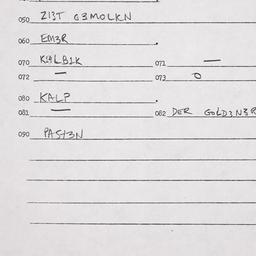 050 ZI3T G3MOLKN
060 EM3R
070 KALB2K 071 —
072 — 073 O
080 KALP
081 — 082 DER GOLD3N3R
090 PAST3N